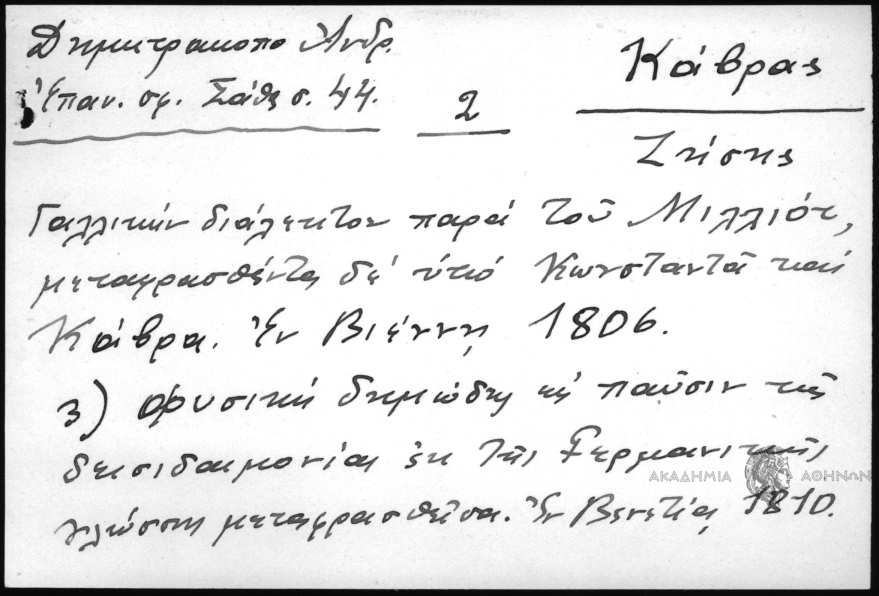 Δημητρακοπο Ἀνδρ.
Ἐπαν. σφ. Σάθα σ. 44.
2
Κάβρας
Ζήσης
Γαλλικὴν διάλεκτον παρὰ τοῦ Μιλλιότ,
μεταφρασθέντα δὲ ὑπὸ Κωνσταντᾶ καὶ
Κάβρα. Ἐν Βιέννῃ 1806.
3) Φυσικὴ δημώδης εἰς παῦσιν τῆς
δεισιδαιμονίας ἐκ τῆς Γερμανικῆς
γλώσσης μεταφρασθεῖσα. Ἐν Βενετίᾳ 1810.
ΑΚΑΔΗΜΙΑ ΑΘΗΝΩΝ